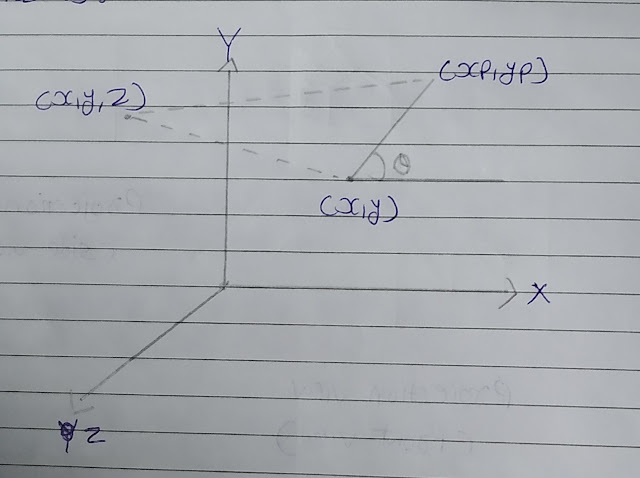 Y
(xp,yp)
(x,y,z)
θ
(x,y)
X
z